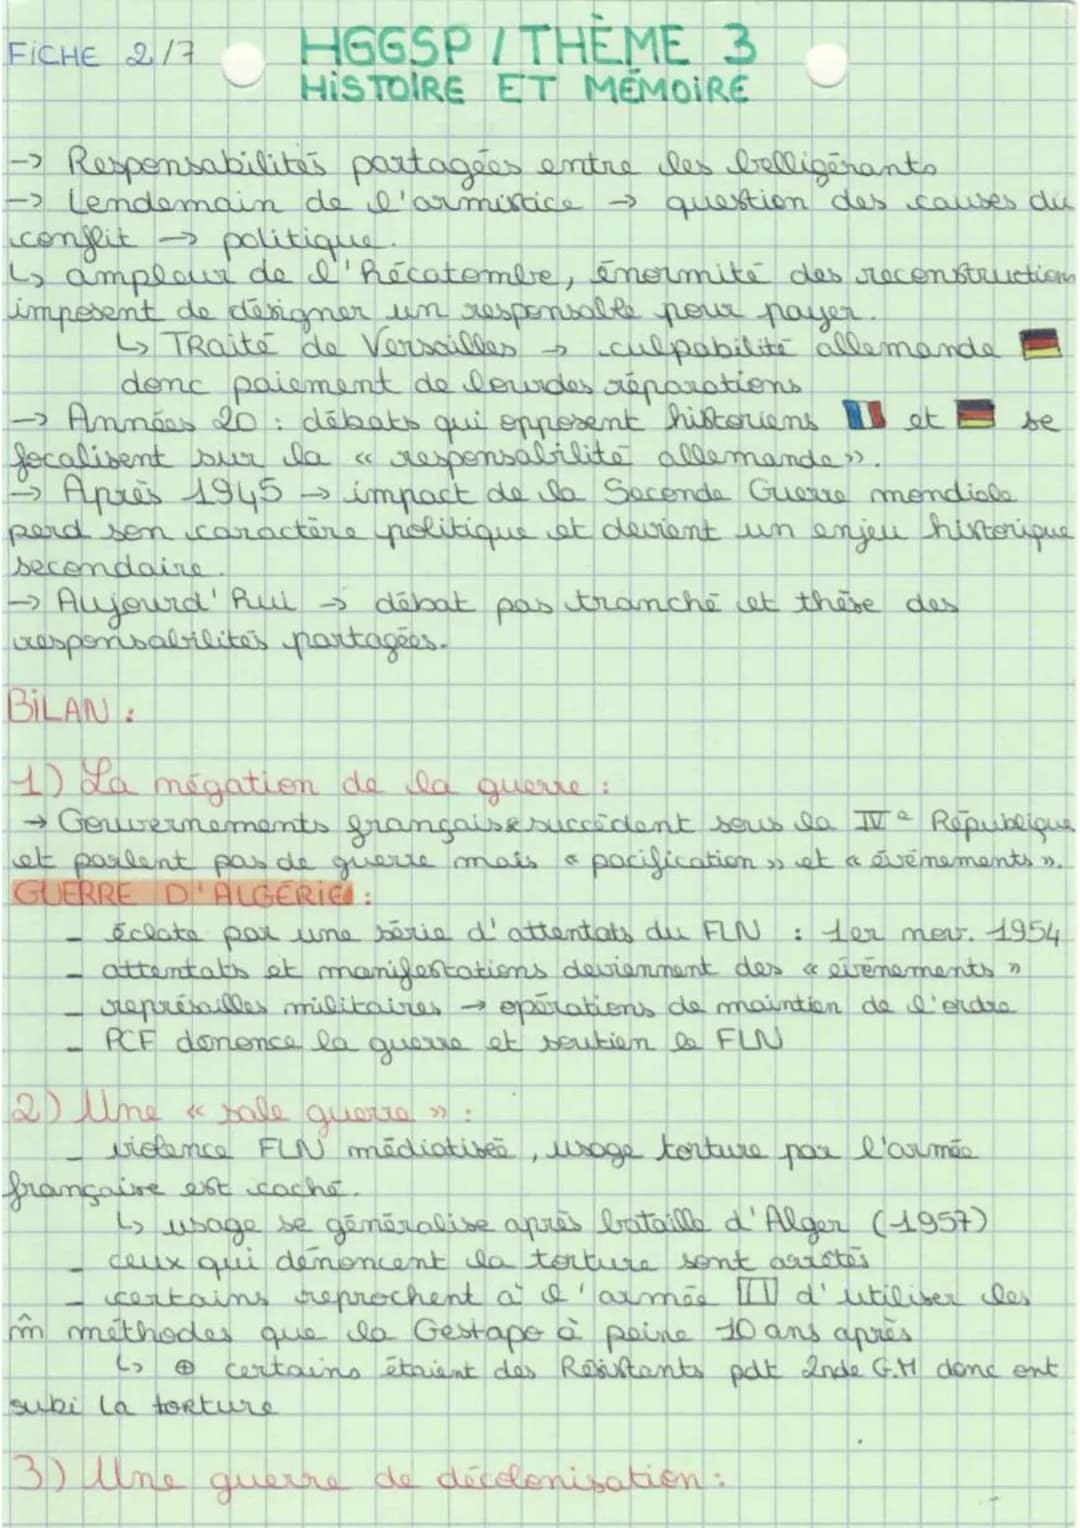 FICHE 2/7
HGGSP / THÈME 3
HISTOIRE ET MÉMOIRE
→ Responsabilités partagées entre les belligérants
→ Lendemain de l'armistice → question des causes du
conflit → politique.
↳ ampleur de l'hécatombe, énormité des reconstructions
imposent de désigner un responsable pour payer.
↳ TRaité de Versailles → culpabilité allemande
donc paiement de lourdes réparations
→ Années 20 : débats qui opposent historiens et se
focalisent sur la « responsabilité allemande ».
→ Après 1945 → impact de la Seconde Guerre mondiale
perd son caractère politique et devient un enjeu historique
secondaire.
→ Aujourd'hui → débat pas tranché et thèse des
responsabilités partagées.
BILAN :
1) La négation de la guerre :
→ Gouvernements français se succèdent sous la IVe République
et parlent pas de guerre mais « pacification » et « événements ».
GUERRE D'ALGÉRIE :
- éclate par une série d'attentats du FLN : 1er nov. 1954
- attentats et manifestations deviennent des « événements »
- représailles militaires → opérations de maintien de l'ordre
- PCF dénonce la guerre et soutien le FLN
2) Une « sale guerre » :
- violence FLN médiatisée, usage torture par l'armée
française est caché.
↳ usage se généralise après bataille d'Alger (1957)
- ceux qui dénoncent la torture sont arrêtés
- certains reprochent à l'armée d'utiliser les
m̂ méthodes que la Gestapo à peine 10 ans après
↳ ⊕ certains étaient des Résistants pdt 2nde G.M donc ont
subi la torture
3) Une guerre de décolonisation :